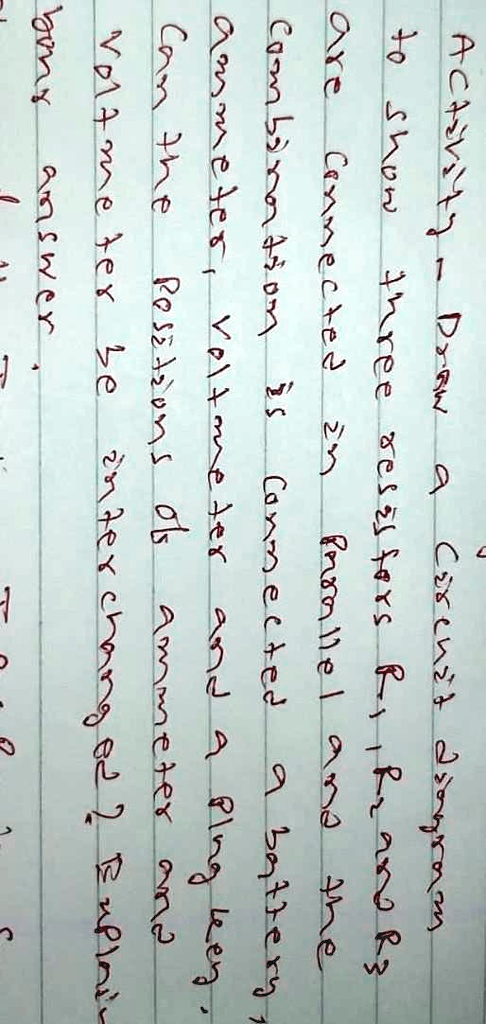 Activity - Draw a circuit diagram
to show three resistors R1, R2 and R3
are connected in Parallel and the
combination is connected a battery,
ammeter, voltmeter and a plug key.
Can the Positions of ammeter and
voltmeter be interchanged? Explain
your answer.